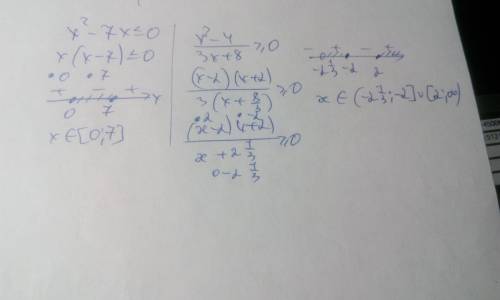 x² - 7x ≤ 0
x(x-7) ≤ 0
•0 •7
+ - + x
0 7
x ∈ [0;7]
x² - 4
3x + 8 ≥ 0
(x-2)(x+2)
3(x + 8/3) ≥ 0
•2 •-2
(x-2)(x+2)
x + 2 1/3 ≥ 0
o -2 1/3
- + - +
-2 1/3 -2 2
x ∈ (-2 1/3; -2] ∪ [2; ∞)